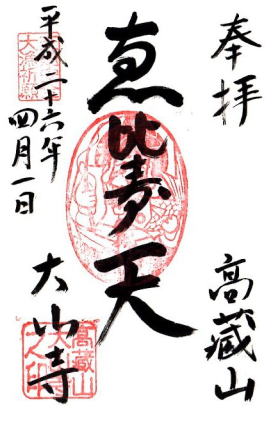 奉拝
高蔵山
恵比寿天
大山寺
平成二十六年
四月一日
大漁祈願
高蔵山
大山寺
之印